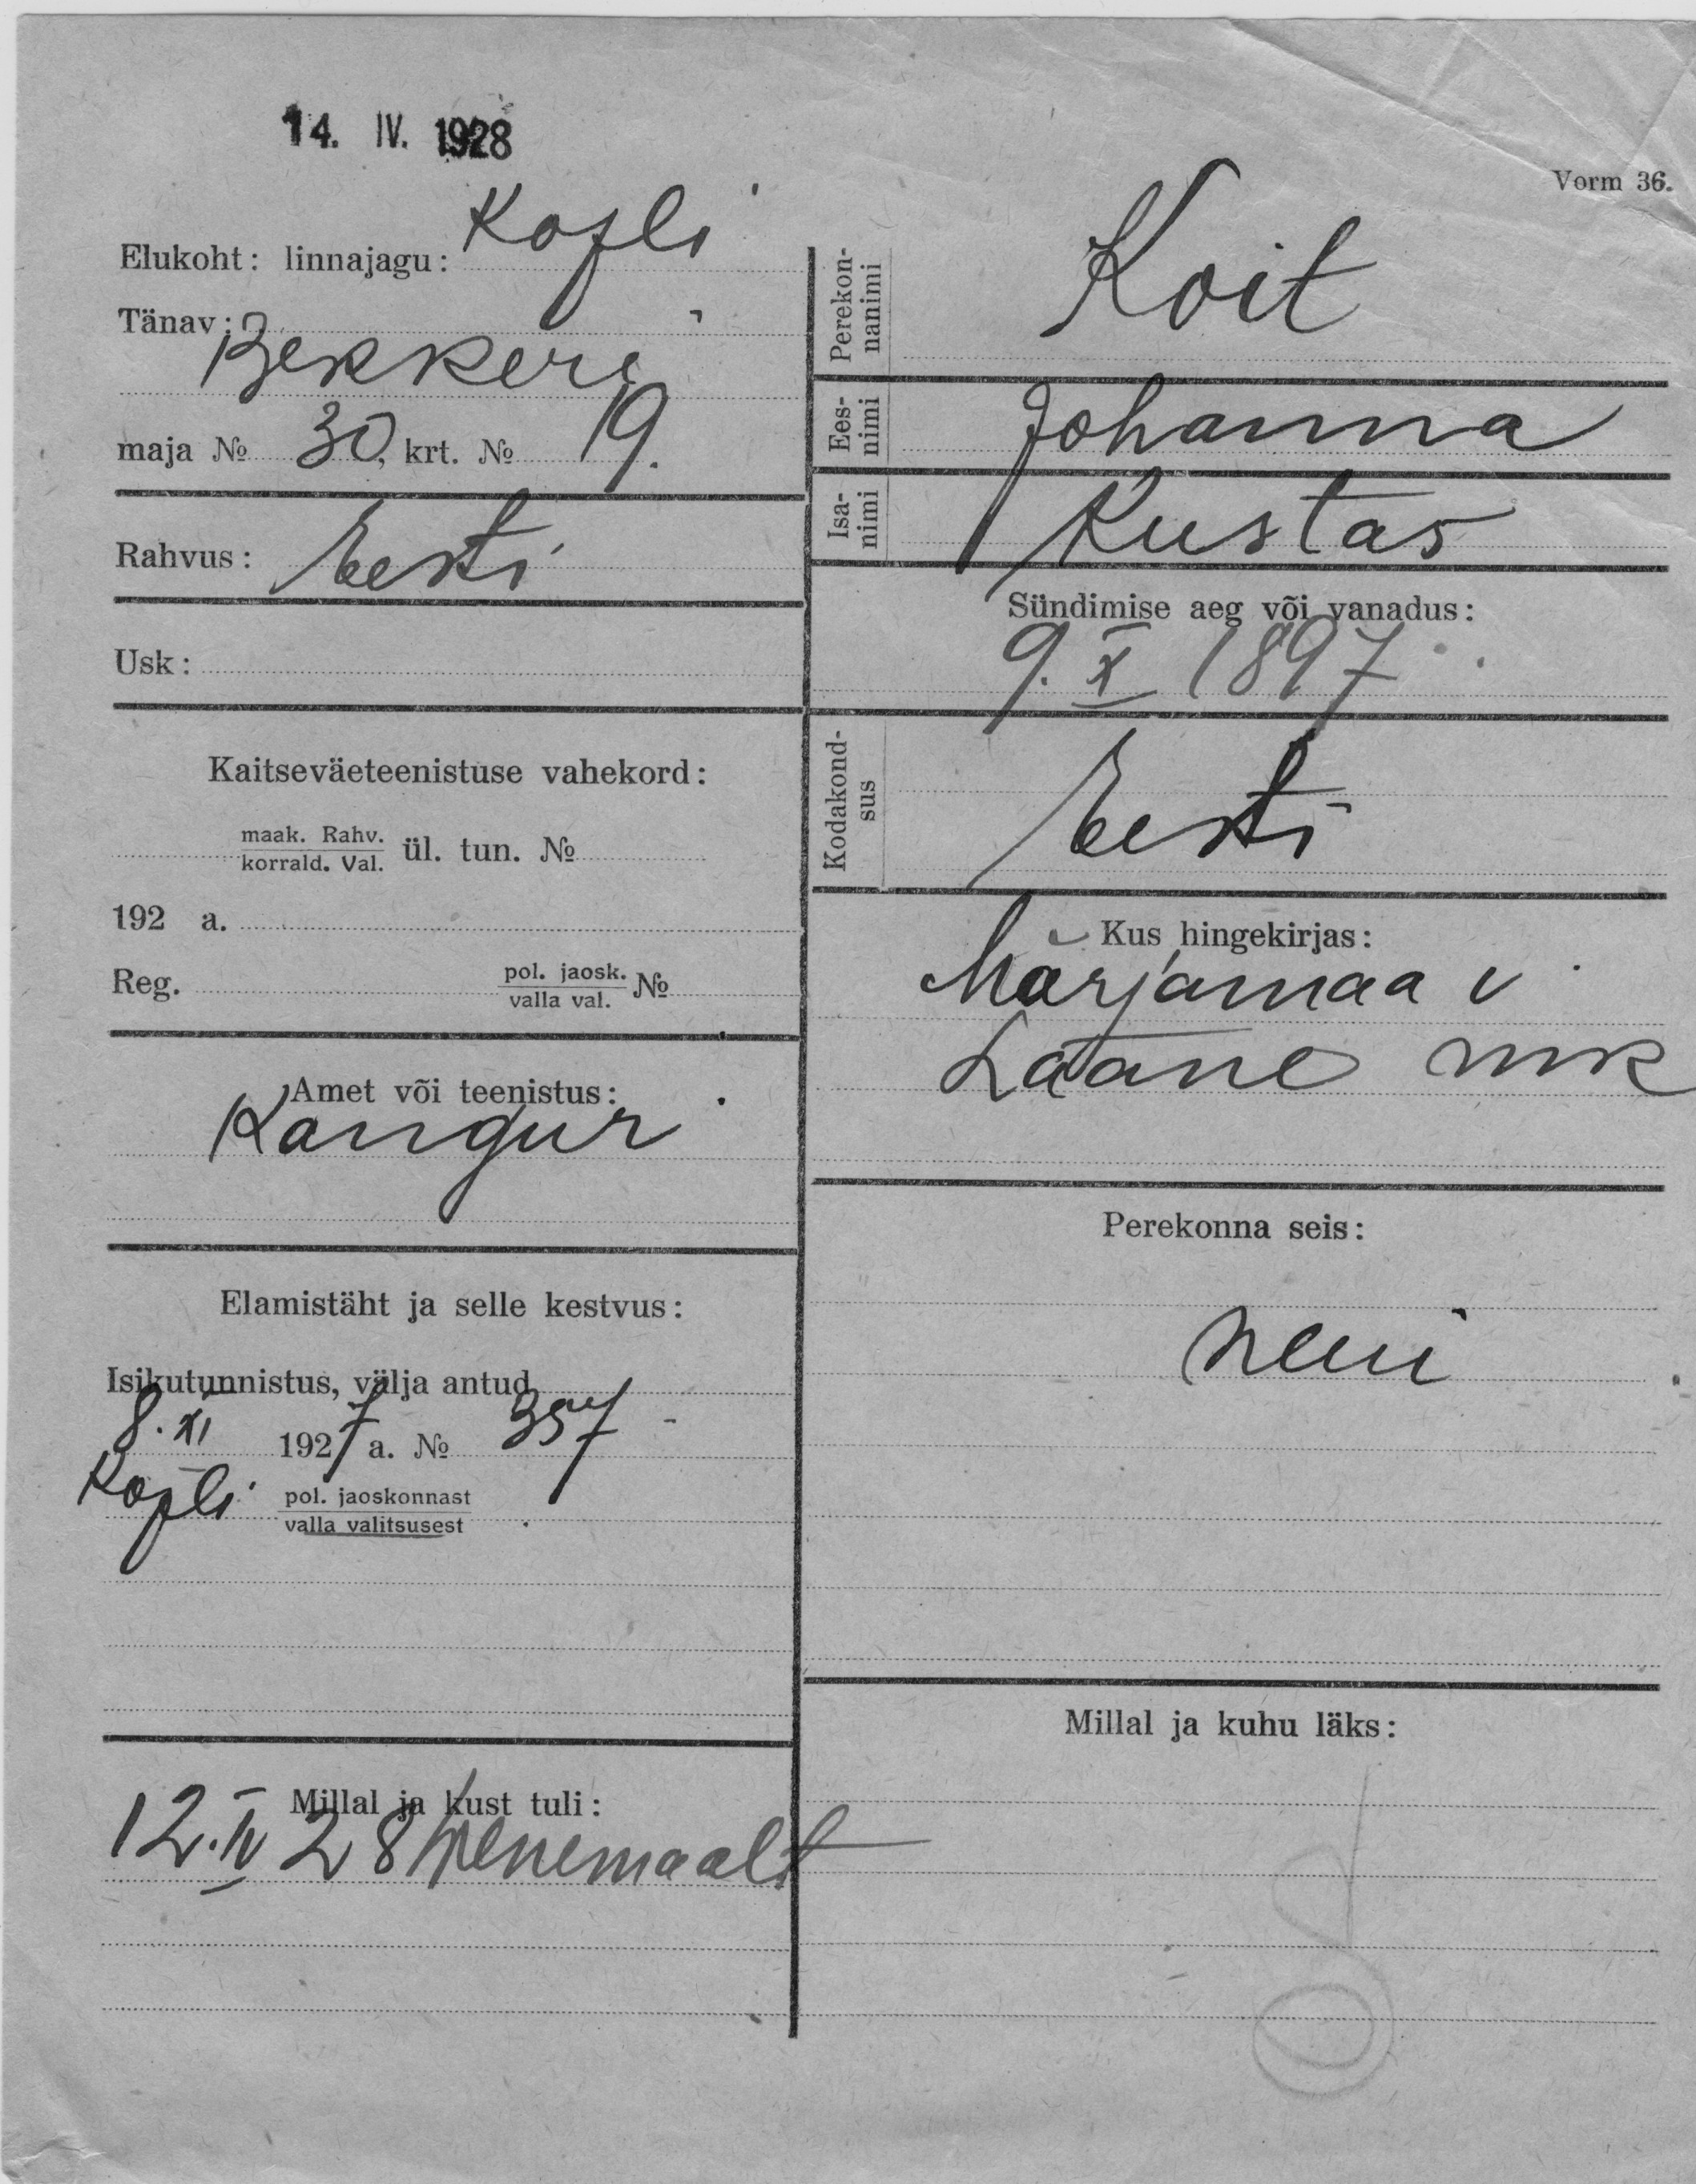 14. IV. 1928
Vorm 36.
Elukoht: linnajagu: Kopli
Tänav:
Bekkeri
maja № 30, krt. № 19.
Rahvus: Eesti
Usk:
Kaitseväeteenistuse vahekord:
maak. Rahv.
korrald. Val. ül. tun. №
192 a.
Reg. pol. jaosk.
valla val. №
Amet või teenistus:
Kangur
Elamistäht ja selle kestvus:
Isikutunnistus, välja antud
8. XI 1927 a. № 357
Kopli pol. jaoskonnast
valla valitsusest
Millal ja kust tuli:
12. IV 28 Wenemaalt
Perekon-
nanimi
Koit
Ees-
nimi
Johanna
Isa-
nimi
Kustas
Sündimise aeg või vanadus:
9. X 1897
Kodakond-
sus
Eesti
Kus hingekirjas:
Märjamaa v
Lääne mk
Perekonna seis:
neiu
Millal ja kuhu läks: